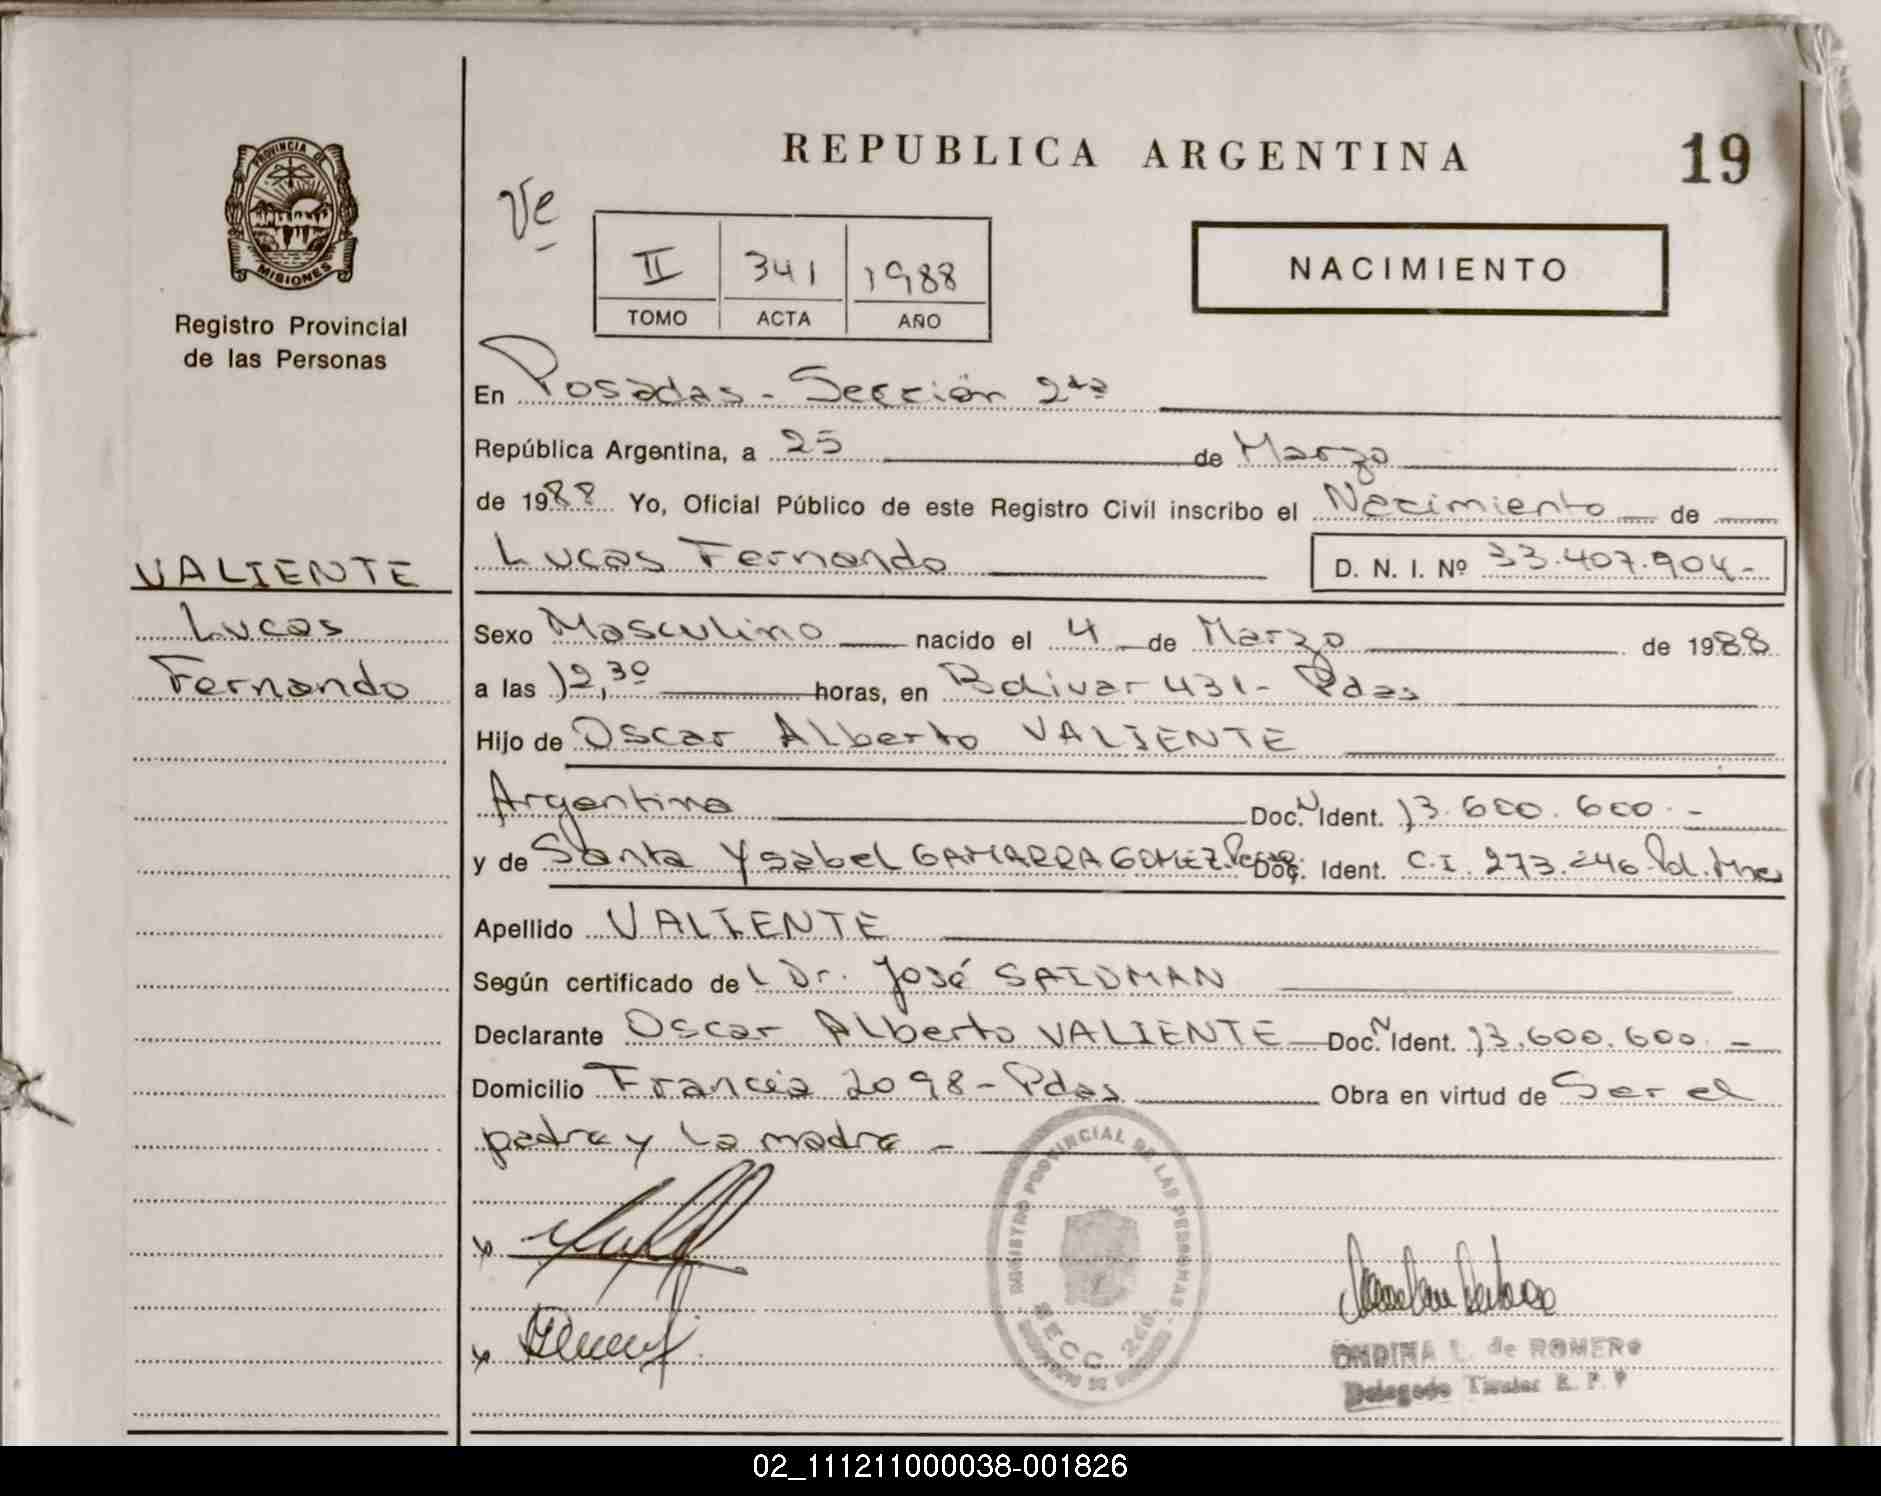 REPUBLICA ARGENTINA
19
PROVINCIA DE
MISIONES
Registro Provincial
de las Personas
Ve
II 341 1988
TOMO ACTA AÑO
NACIMIENTO
En Posadas - Sección 2da
República Argentina, a 25 de Marzo
de 1988 Yo, Oficial Público de este Registro Civil inscribo el Nacimiento de
Lucas Fernando D. N. I. Nº 33.407.904-
VALIENTE
Lucas
Fernando
Sexo Masculino nacido el 4 de Marzo de 1988
a las 12,30 horas, en Bolivar 431- Pdas
Hijo de Oscar Alberto VALIENTE
Argentina Doc. N Ident. 13.600.600.-
y de Santa Ysabel GAMARRA GOMEZ. Doc. Ident. C.I. 273.246
Apellido VALIENTE
Según certificado del Dr. José SAIDMAN
Declarante Oscar Alberto VALIENTE Doc. N Ident. 13.600.600.-
Domicilio Francia 2098- Pdas Obra en virtud de Ser el
padre y la madre -
REGISTRO PROVINCIAL DE LAS PERSONAS
SECC. 2da.
ONDINA L. de ROMERO
Delegado Titular R. P. P
02_111211000038-001826